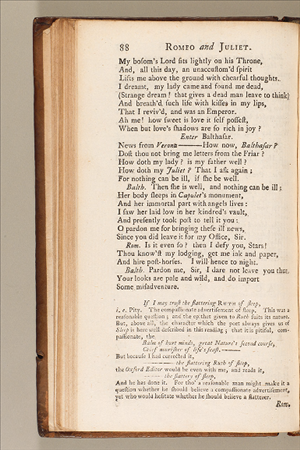 88 ROMEO and JULIET.
My bosom's Lord sits lightly on his Throne,
And, all this day, an unaccustom'd spirit
Lifts me above the ground with chearful thoughts.
I dreamt, my lady came and found me dead,
(Strange dream! that gives a dead man leave to think)
And breath'd such life with kisses in my lips,
That I reviv'd, and was an Emperor.
Ah me! how sweet is love it self possest,
When but love's shadows are so rich in joy?
Enter Balthasar.
News from Verona——How now, Balthasar?
Dost thou not bring me letters from the Friar?
How doth my lady? is my father well?
How doth my Juliet? That I ask again;
For nothing can be ill, if she be well.
Balth. Then she is well, and nothing can be ill;
Her body sleeps in Capulet's monument,
And her immortal part with angels lives:
I saw her laid low in her kindred's vault,
And presently took post to tell it you:
O pardon me for bringing these ill news,
Since you did leave it for my Office, Sir.
Rom. Is it even so? then I defy you, Stars!
Thou know'st my lodging, get me ink and paper,
And hire post-horses. I will hence to night.
Balth. Pardon me, Sir, I dare not leave you thus.
Your looks are pale and wild, and do import
Some misadventure.
If I may trust the flattering RUTH of sleep,
i. e. Pity. The compassionate advertisement of sleep. This was a
reasonable question; and the epithet given to Ruth suits its nature.
But, above all, the character which the poet always gives us of
Sleep is here well described in this reading; that it is pitiful, compassionate, the
Balm of hurt minds, great Nature's second course,
Chief nourisher of life's feast.——
But because I had corrected it,
——the flattering Ruth of sleep,
the Oxford Editor would be even with me, and reads it,
——the flattery of sleep,
And he has done it. For tho' a reasonable man might make it a
question whether he should believe a compassionate advertisement,
yet who would hesitate whether he should believe a flatterer.
Rom.